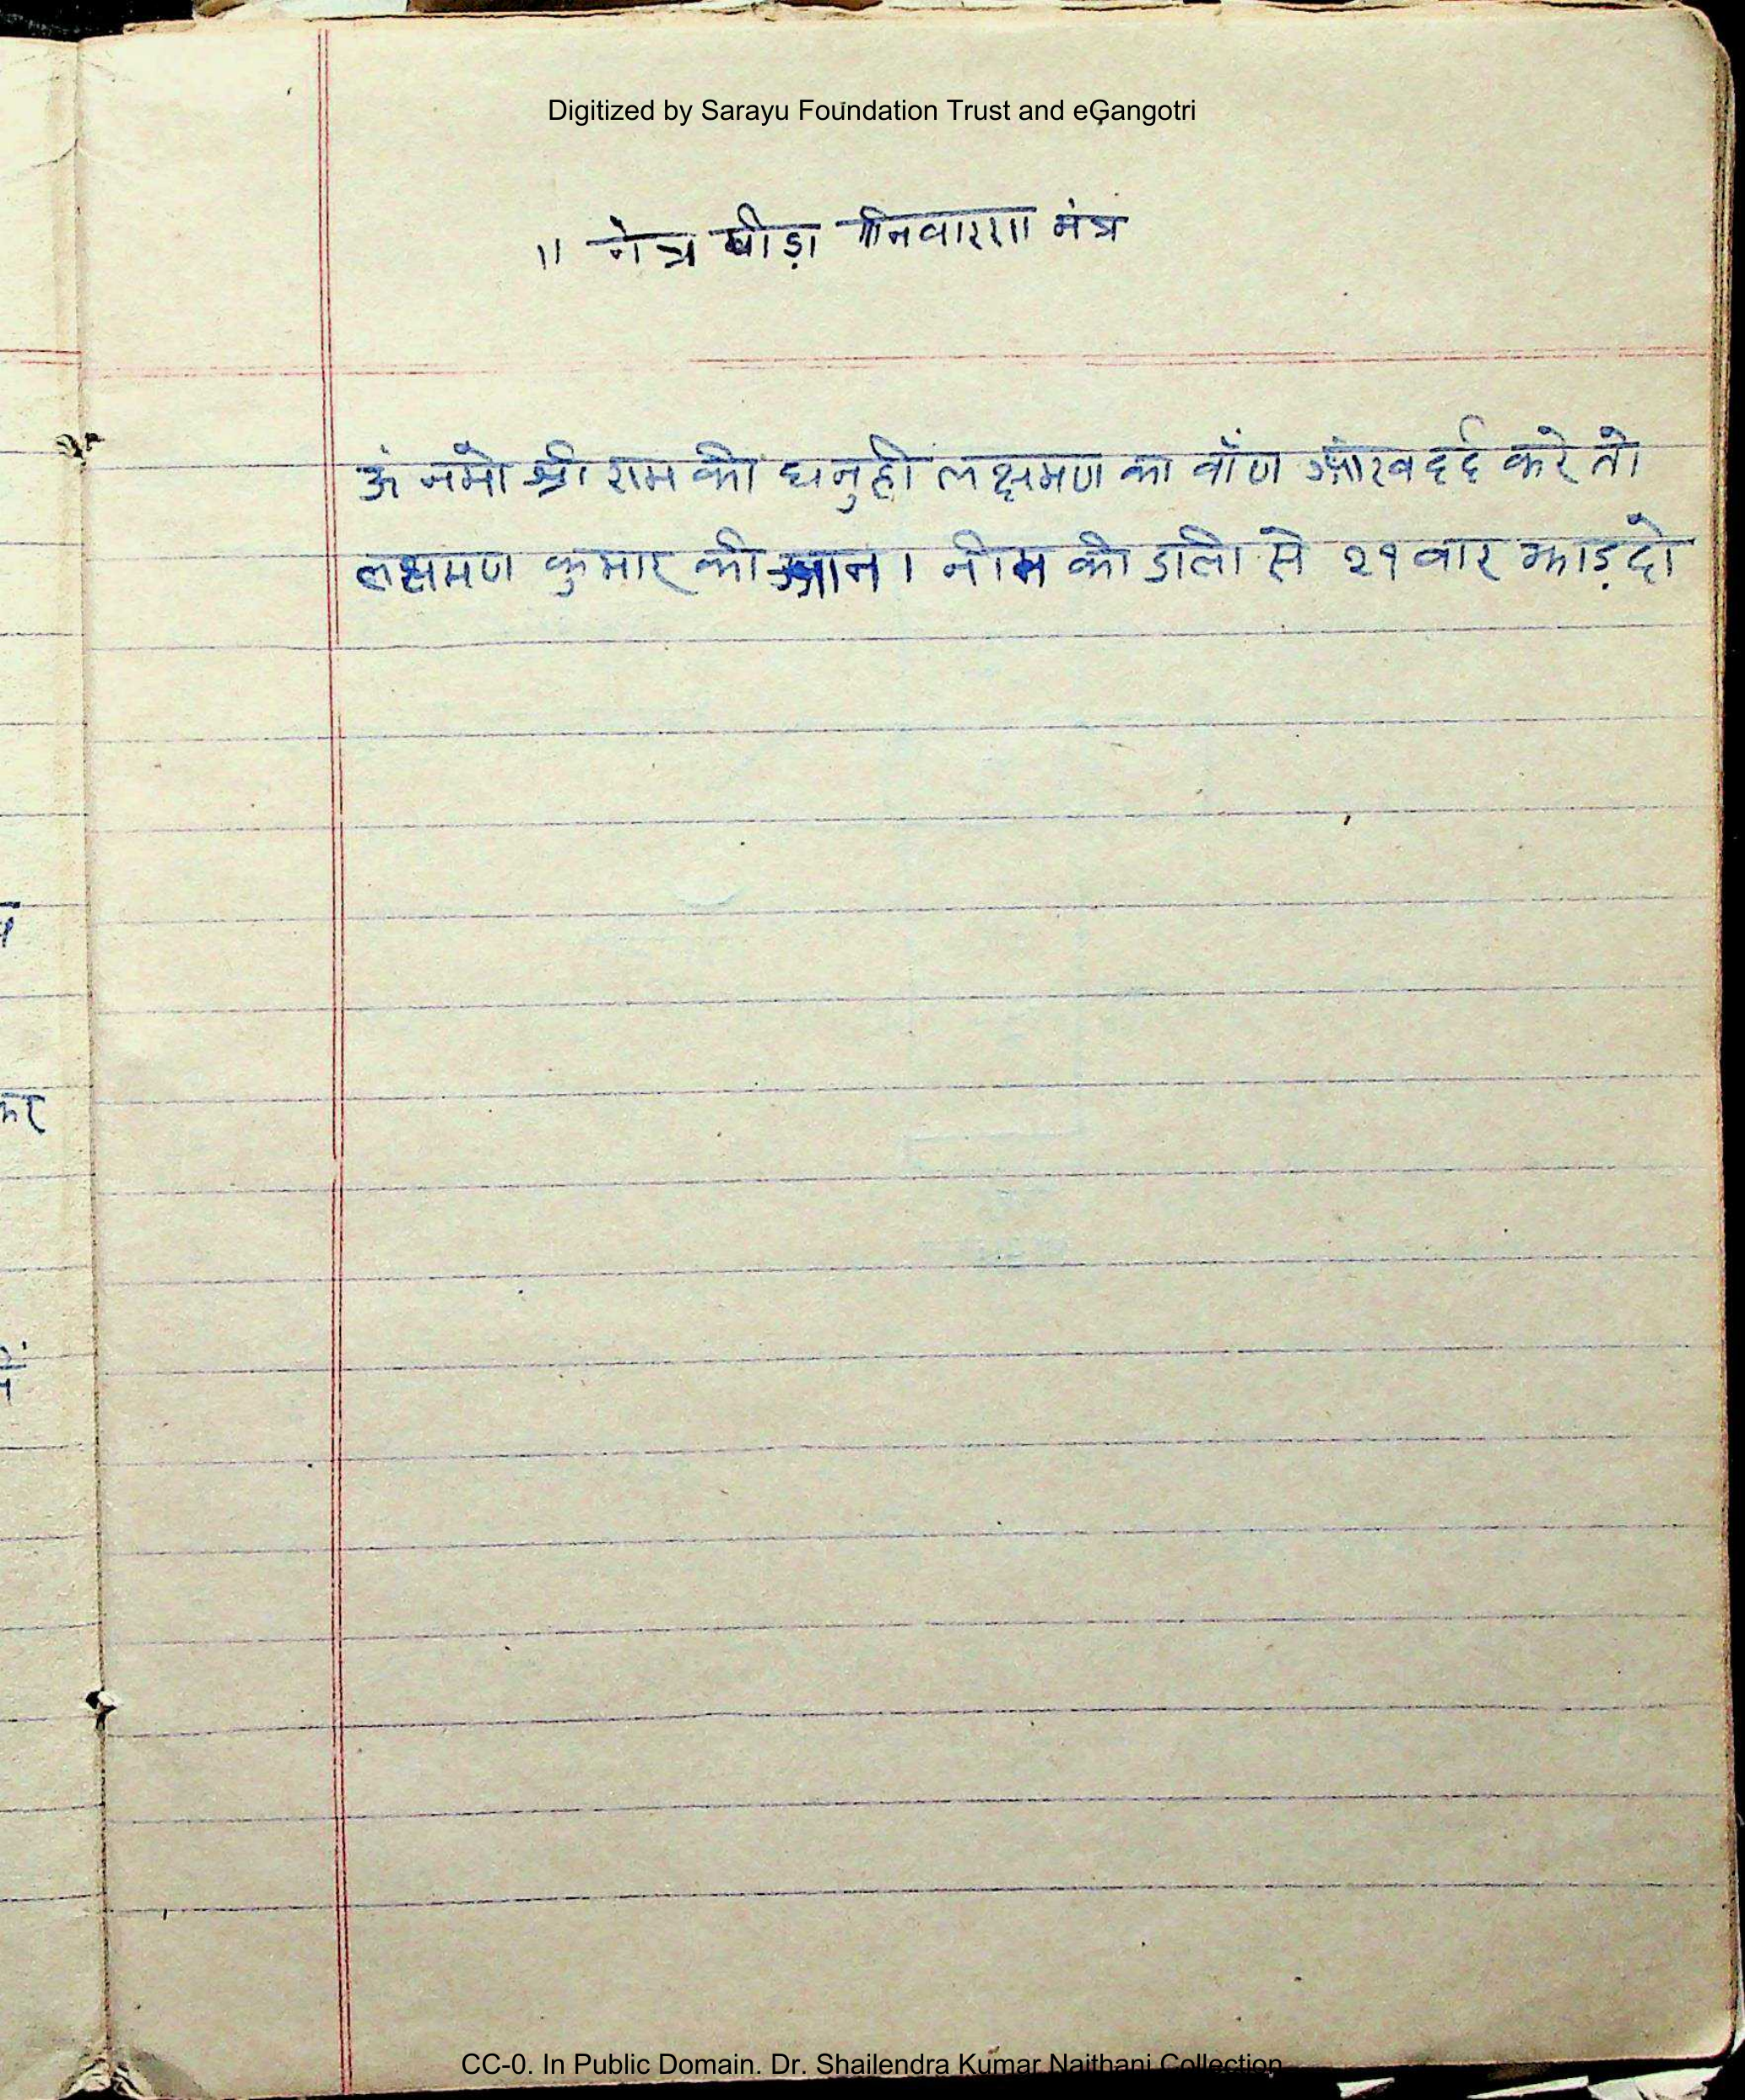 Digitized by Sarayu Foundation Trust and eGangotri
॥ नेत्र पीड़ा निवारण मंत्र
ॐ नमो श्री राम की धनुही लक्षमण का वाँण आँख दर्द करे तो
लक्षमण कुमार की आन। नीम की डाली से २१ वार झाड़ दो
कर
CC-0. In Public Domain. Dr. Shailendra Kumar Naithani Collection